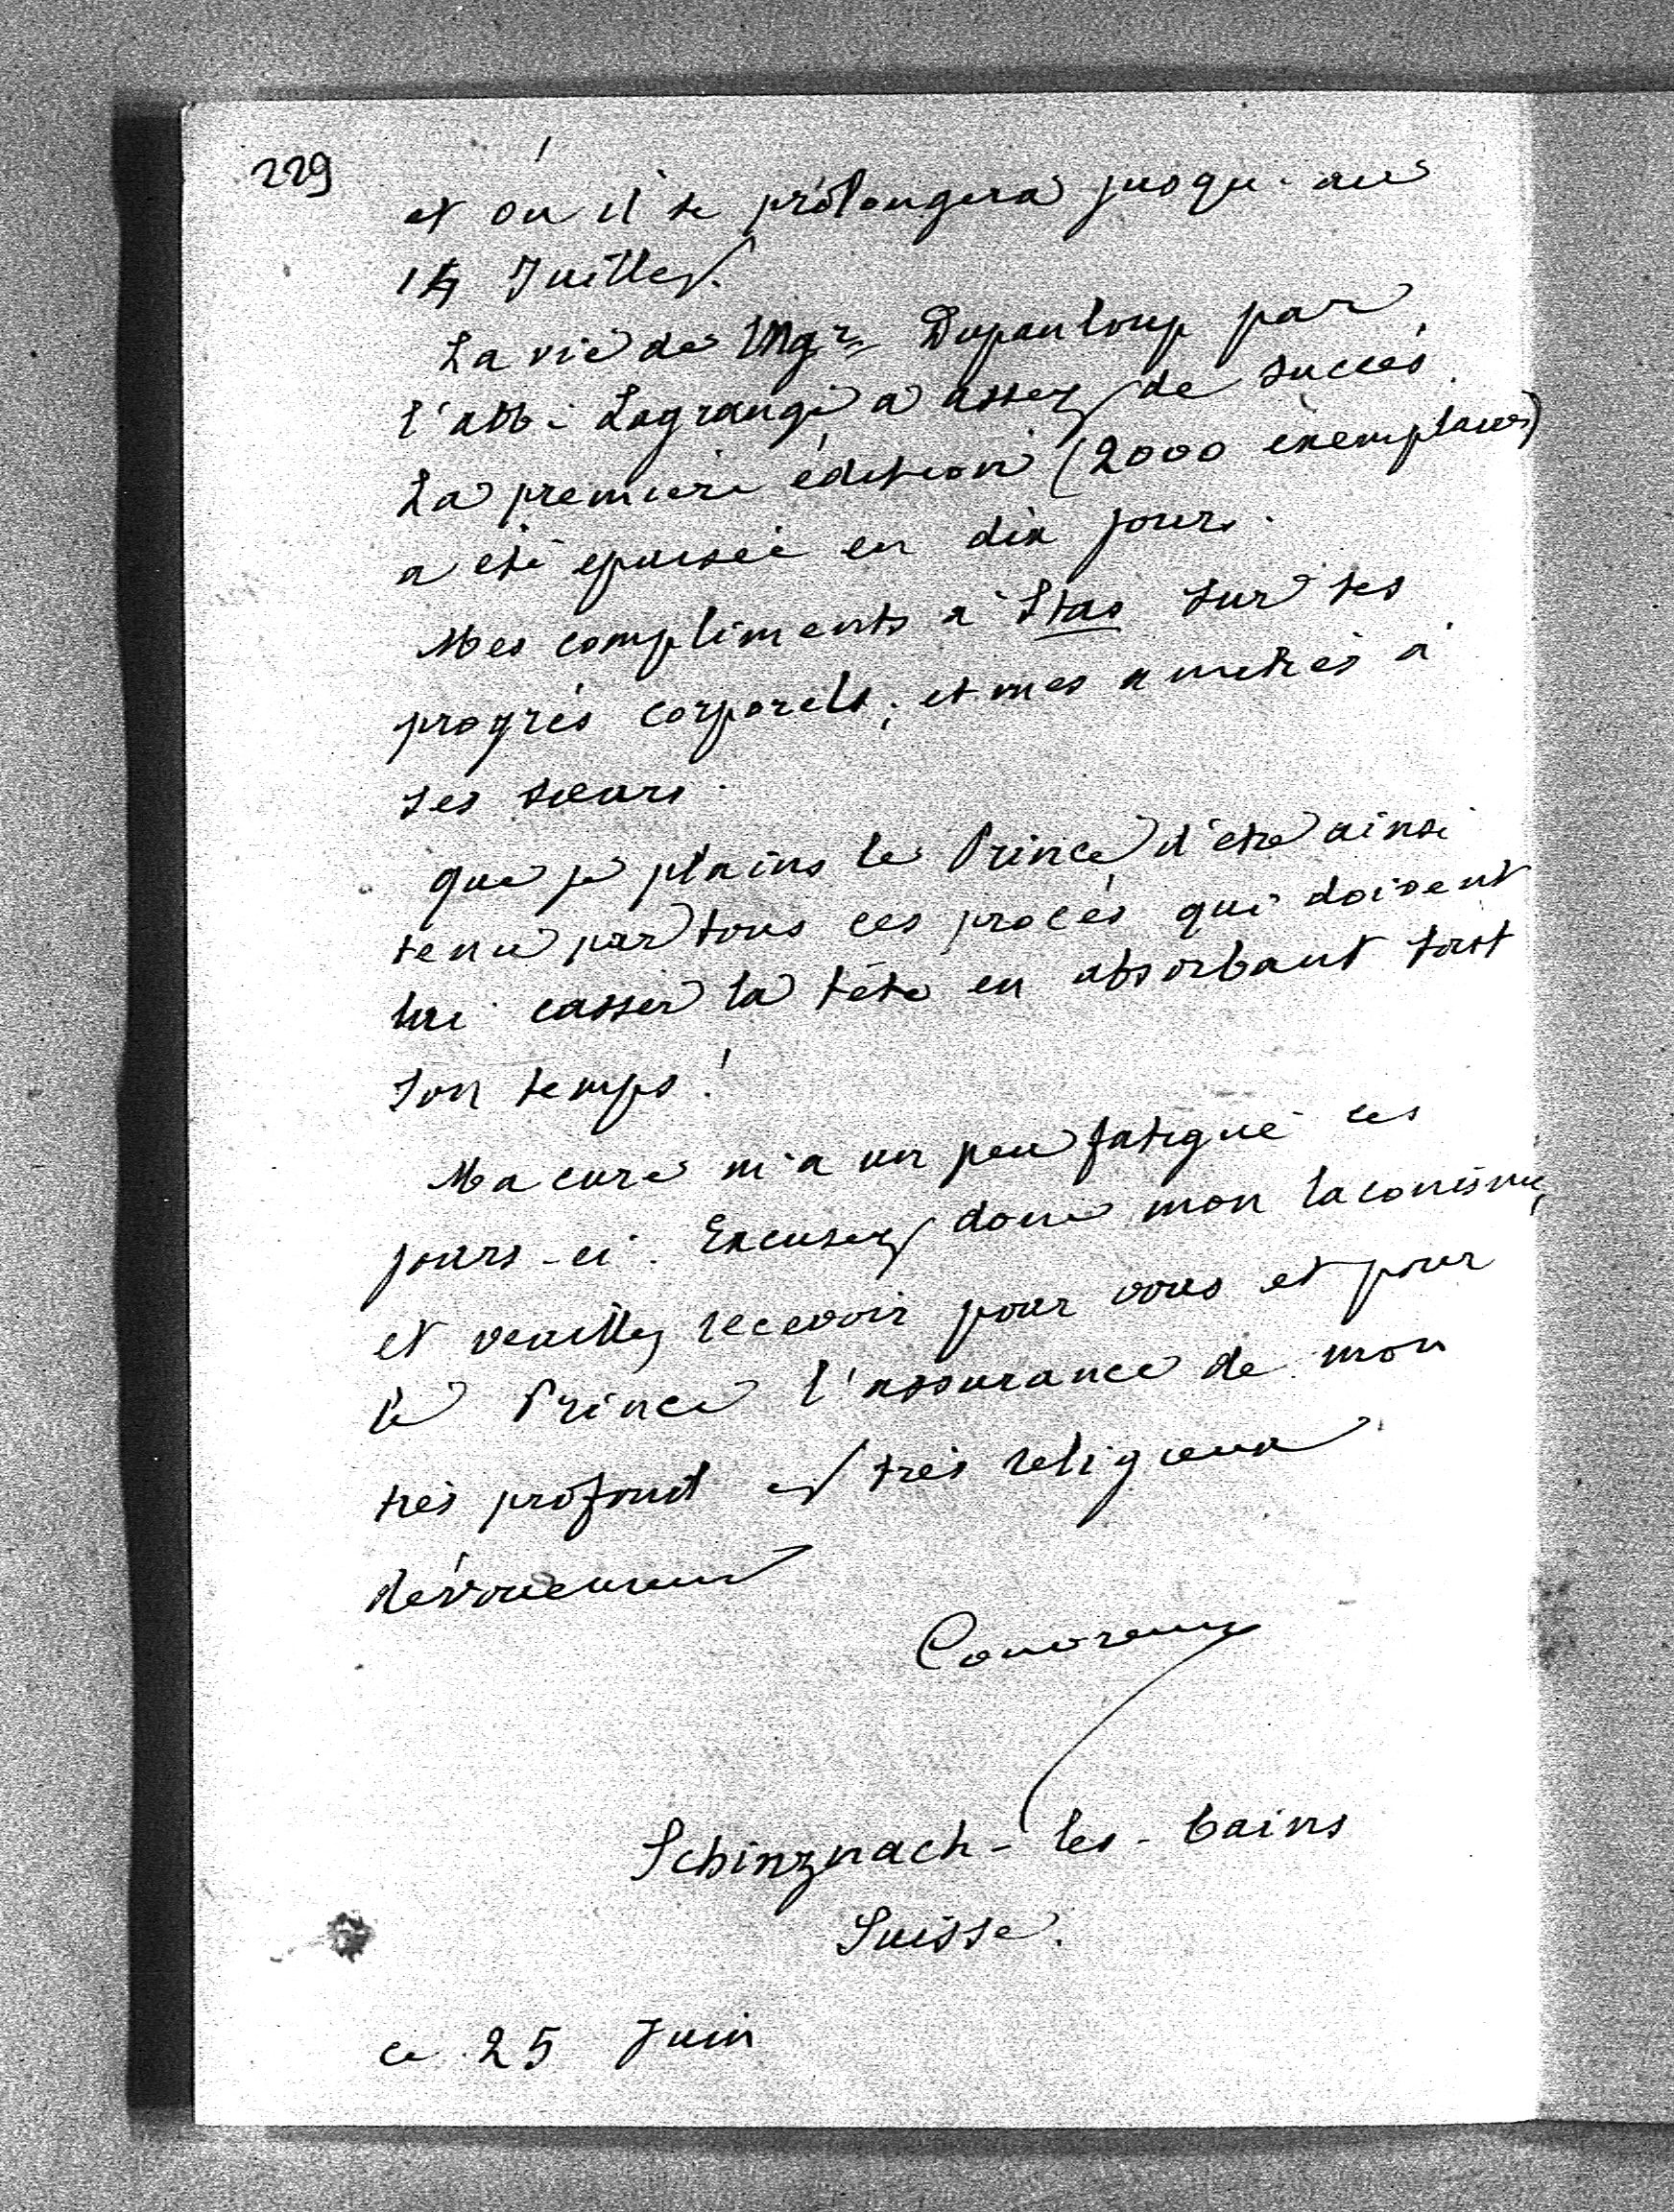 229
et où il se prolongera jusqu'au
14 Juillet.
La vie de Mgr Dupanloup par
l'abbé Lagrange a assez de succès.
La première édition (2000 exemplaires)
a été épuisée en dix jours.
Mes compliments à Stas sur ses
progrès corporels; et mes amitiés à
ses sœurs.
Que je plains le Prince d'être ainsi
tenu par tous ces procès qui doivent
lui casser la tête en absorbant tout
son temps!
Ma cure m'a un peu fatigué ces
jours-ci. Excusez donc mon laconisme,
et veuillez recevoir pour vous et pour
le Prince l'assurance de mon
très profond et très religieux
dévouement
Couvreux
Schinznach-les-bains
Suisse.
ce 25 Juin